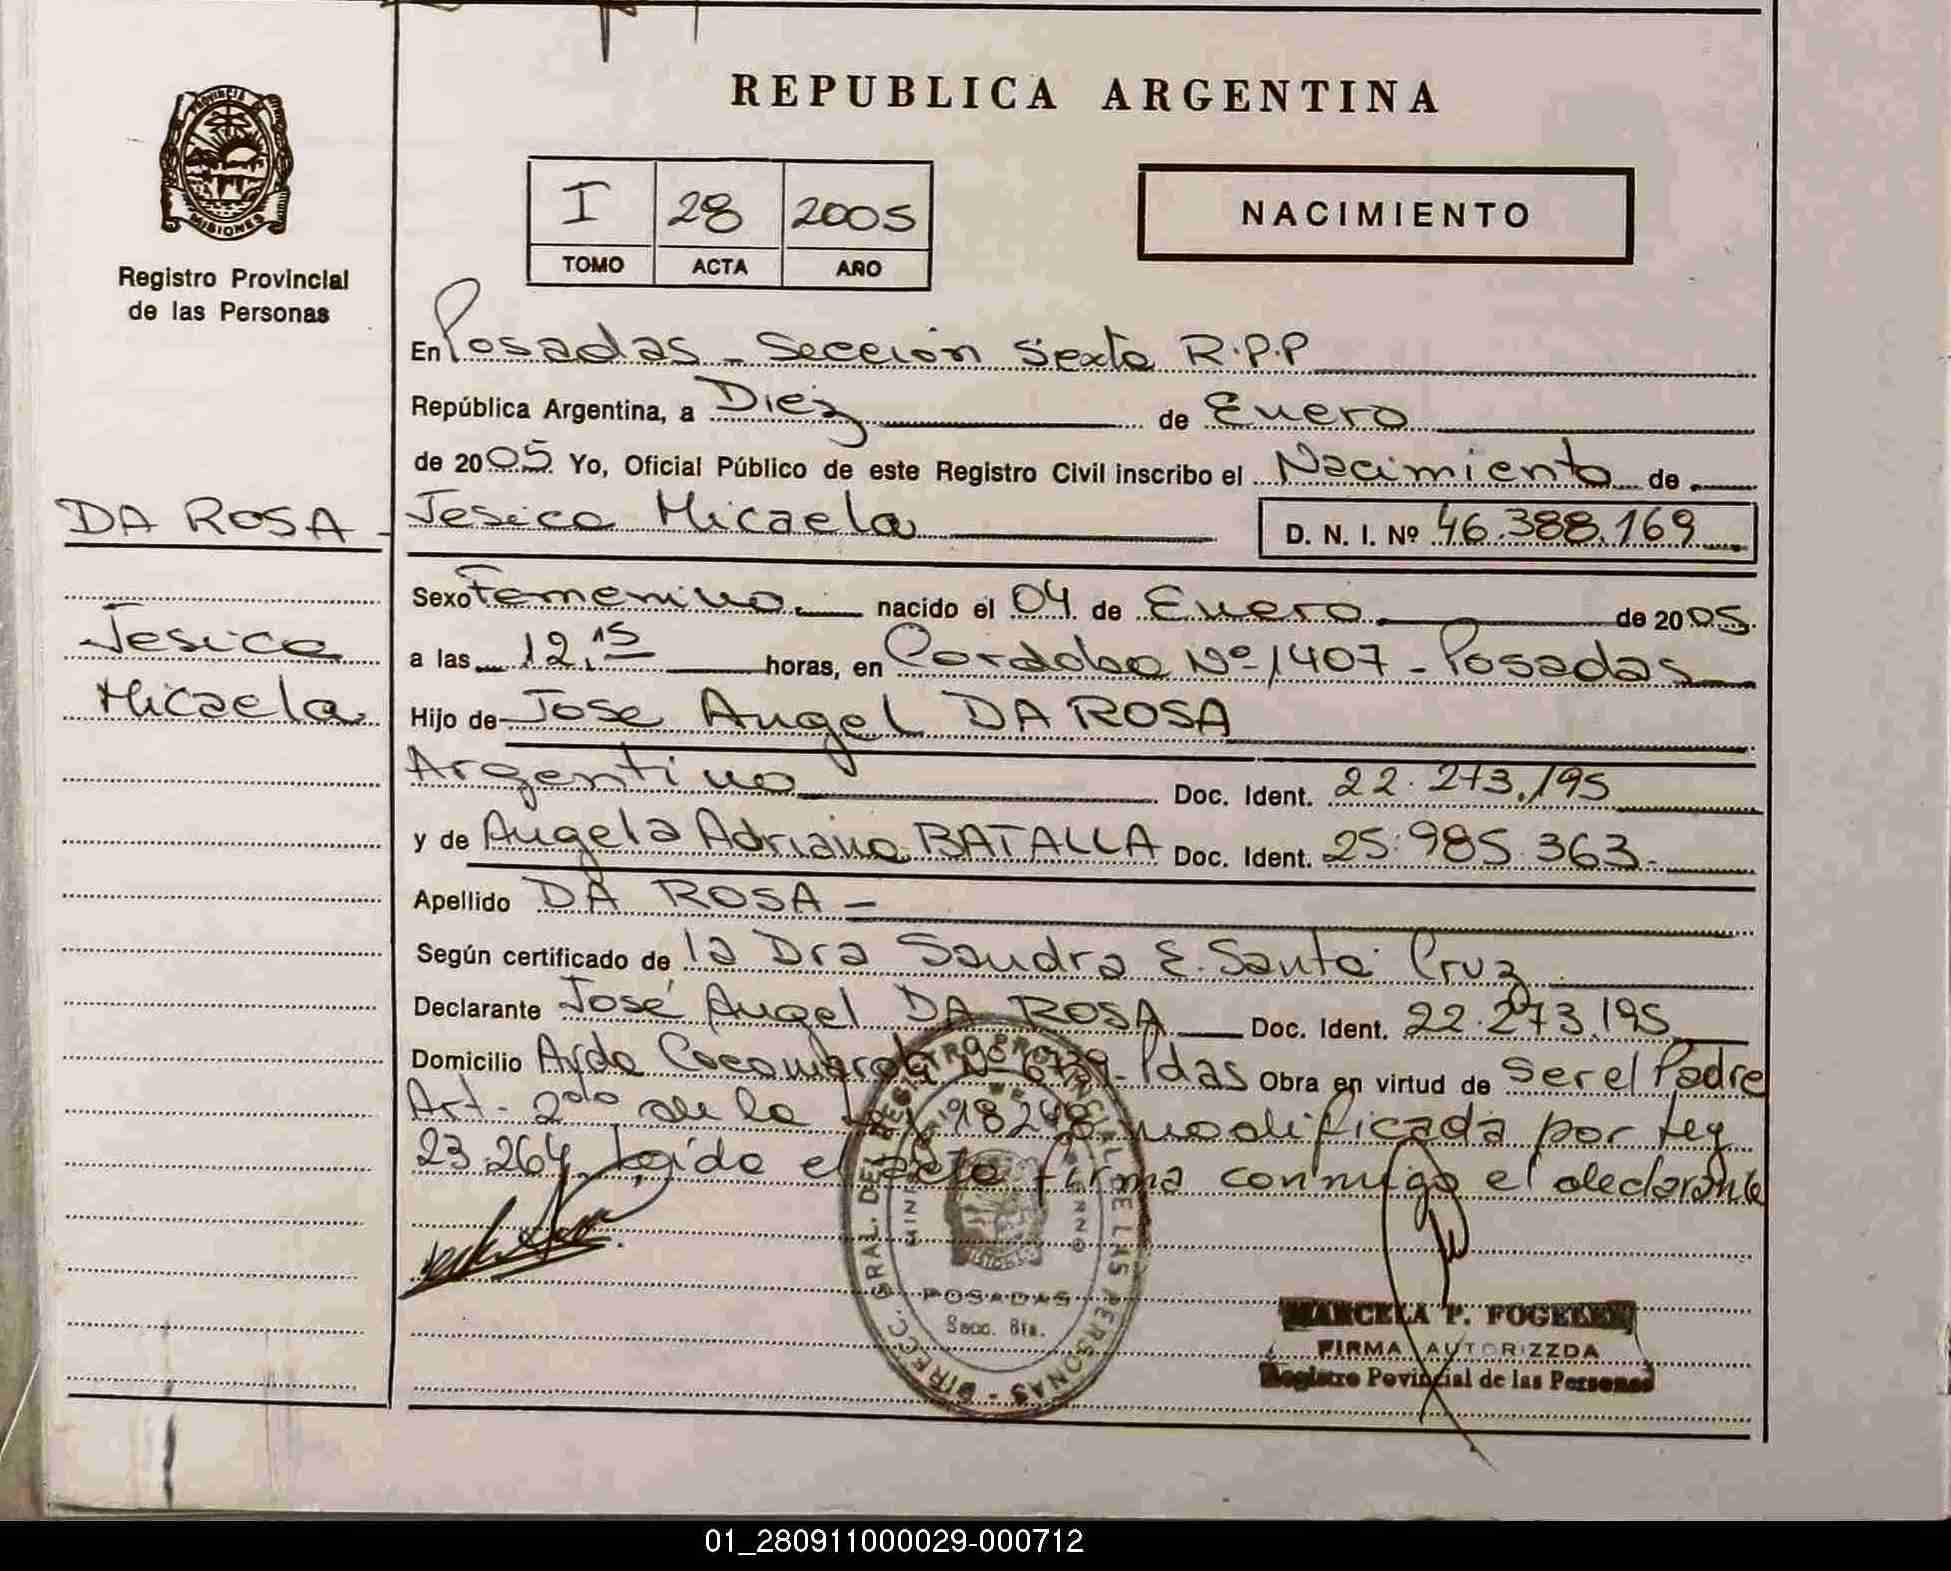 REPUBLICA ARGENTINA
PROVINCIA DE
MISIONES
Registro Provincial
de las Personas
I 28 2005
TOMO ACTA AÑO
NACIMIENTO
En Posadas - Sección Sexta R.P.P
República Argentina, a Diez de Enero
de 2005. Yo, Oficial Público de este Registro Civil inscribo el Nacimiento de
DA ROSA - Jesica Micaela D. N. I. Nº 46.388.169
Jesica
Micaela
Sexo Femenino. nacido el 04 de Enero de 2005
a las 12,15 horas, en Cordoba Nº 1407 - Posadas
Hijo de Jose Angel DA ROSA
Argentino Doc. Ident. 22.273.195
y de Angela Adriana BATALLA Doc. Ident. 25.985.363.-
Apellido DA ROSA -
Según certificado de la Dra Sandra E. Santa Cruz
Declarante José Angel DA ROSA Doc. Ident. 22.273.195
Domicilio Avda Cocomarola Nº 6739 - Pdas Obra en virtud de Ser el Padre
Art. 2do de la Ley 18248 modificada por Ley
23.264 Leida el acta firma conmigo el declarante
DIRECC. GRAL. DEL REGISTRO PROVINCIAL DE LAS PERSONAS
POSADAS
Secc. 6ta.
MARCELA P. FOGELER
FIRMA AUTORIZZDA
Registro Povincial de las Personas
01_280911000029-000712